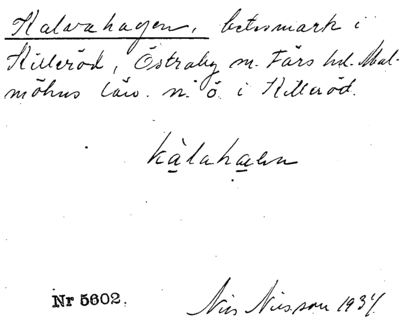 Kalvahagen, betesmark i
Killeröd, Östraby sn. Färs hd. Mal-
möhus län. n. ö. i Killeröd.
kàlahaən
Nr 5602.
Nils Nilsson 1934.